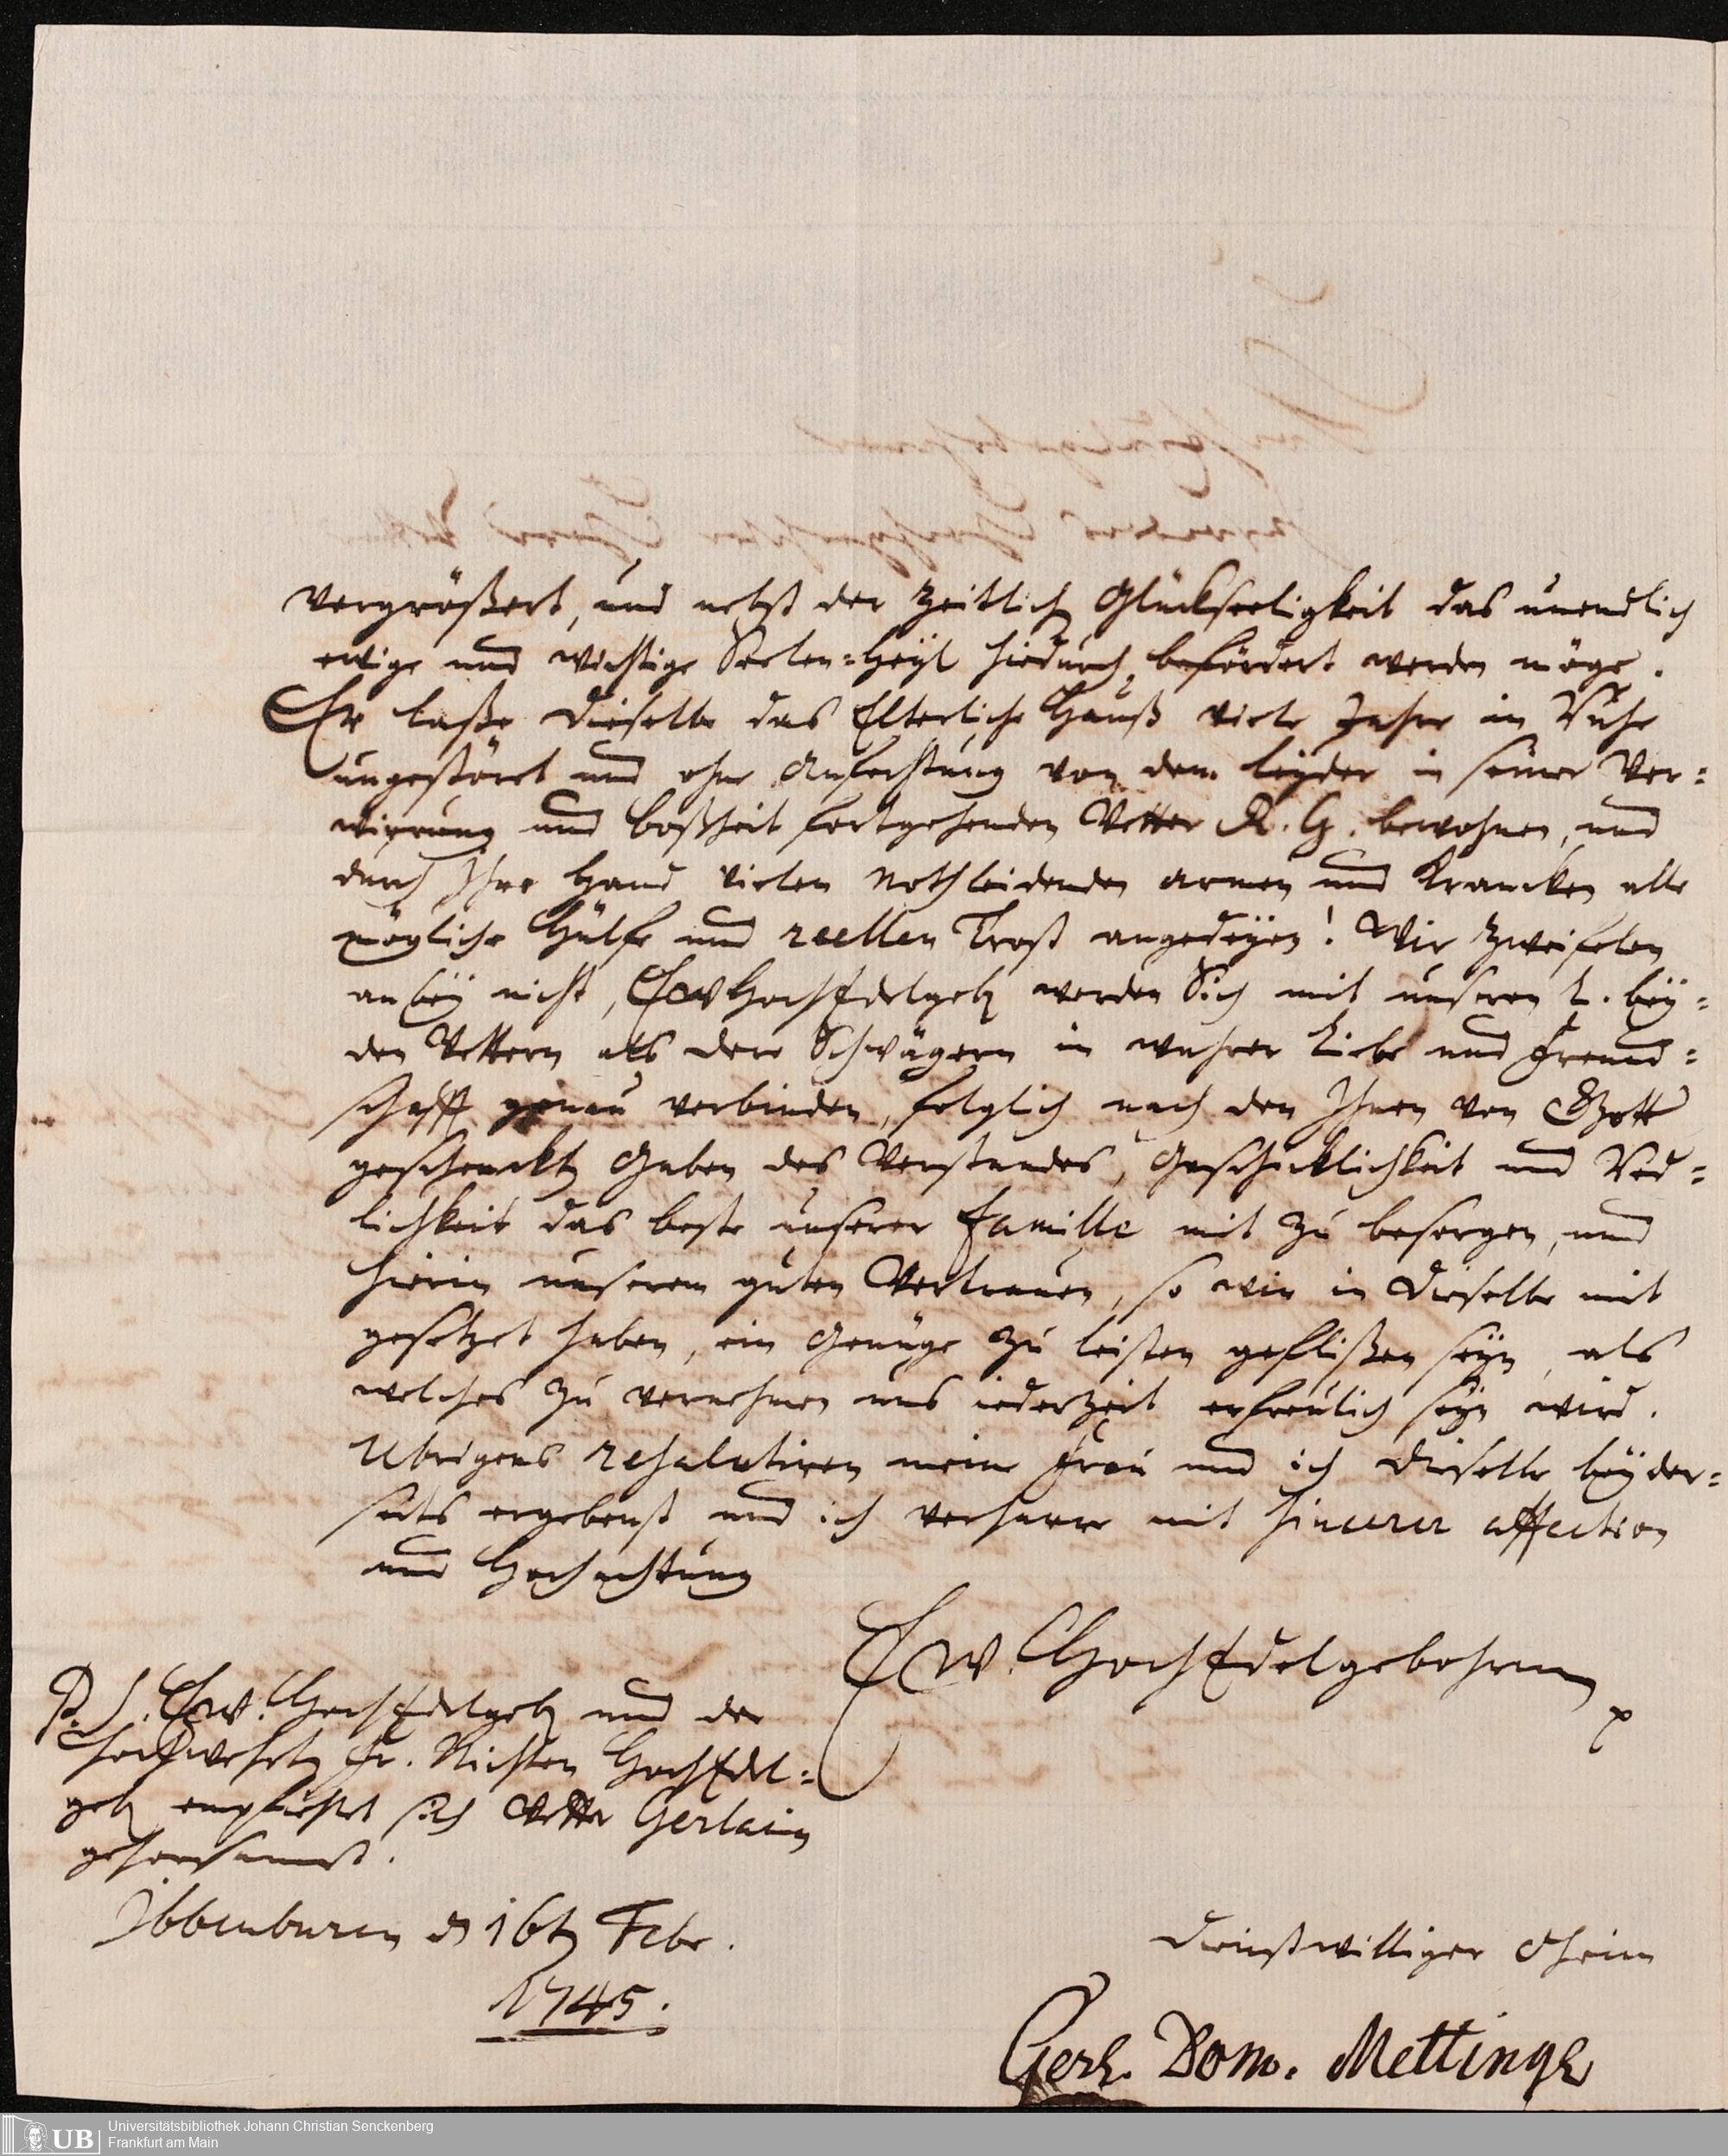 vergrößert, und nebst der zeitlich Glückseeligkeit das unendlich
ewige und wichtige Seelen=Heyl hiedurch befördert werden möge.
Er laße dieselbe das Elterliche Hauß viele Jahre in Ruhe
ungestöret und ohne Anfechtung von dem leyder in seiner Ver=
wirrung und boßheit fortgehenden Vetter R. G. bewohnen, und
durch Ihre Hand vielen Nothleidenden armen und Krancken alle
mögliche Hülfe und reellen Trost angedeyen! Wir zweifelen
anbey nicht, Ew HochEdelgeb werden Sich mit unseren l. bey=
den Vettern als dero Schwägern in wahrer Liebe und Freund=
schafft genau verbinden, folglich nach den Ihnen von Gott
geschenckt Gaben des Verstandes, Geschicklichkeit und Red=
lichkeit das beste unserer Famille mit zu besorgen, und
hierin unserem guten Vertrauen, so wir in dieselbe mit
gesetzet haben, ein Genüge zu leisten geflißen seyn, als
welches zu vernehmen uns iederzeit erfreulich seyn wird.
Ubrigens resalutiren meine Frau und ich dieselbe beyder=
seits ergebenst und ich verharre mit sincerer affection
und Hochachtung
Ew. HochEdelgebohrnen
P. S. Ew. HochEdelgeb und der
hochwehrt Fr. Nichten HochEdel=
geb empfiehlet sich Vetter Gerlain
gehorsamst.
Ibbenburen d 16t Febr.
1745.
dienstwilliger Oheim
Gerh. Dom. Metting
UB
Universitätsbibliothek Johann Christian Senckenberg
Frankfurt am Main